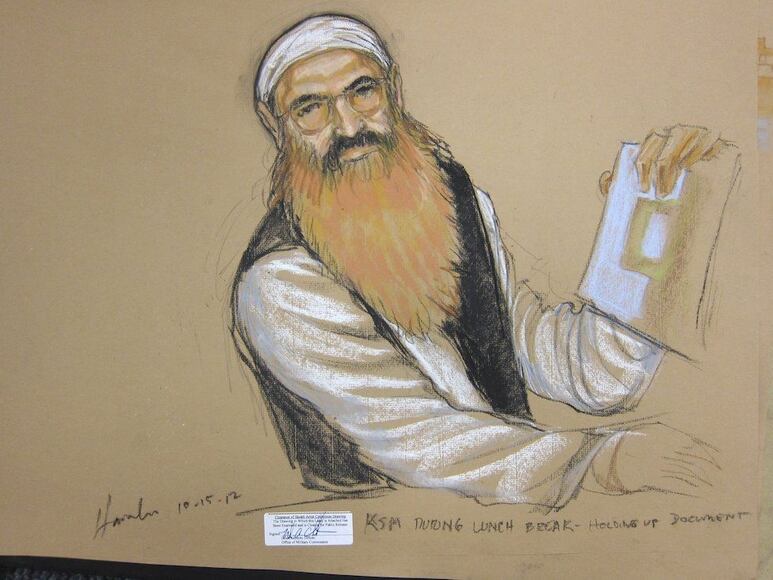 10-15-12
KSM DURING LUNCH BREAK - HOLDING UP DOCUMENT
Clearance of Sketch Artist Courtroom Drawing
The Drawing to Which this Label is Attached Has
Been Examined and is Cleared for Public Release
Signed
Office of Military Commissions